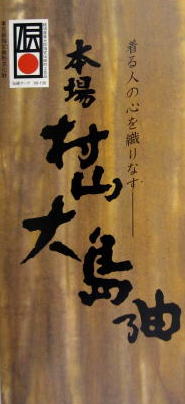 着る人の心を織りなす
本場
村山
大島
紬
伝